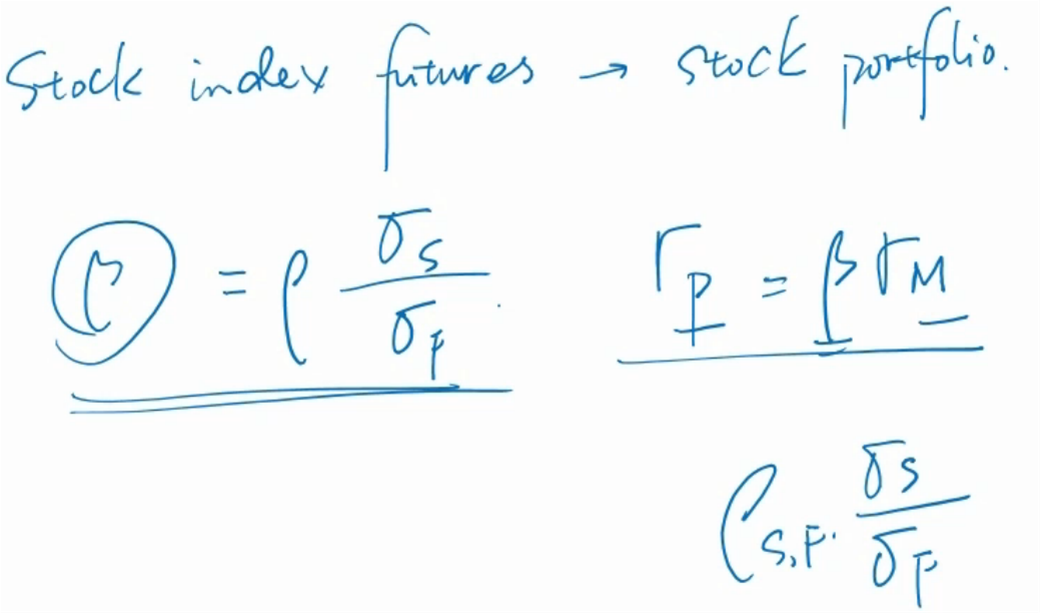 Stock index futures → stock portfolio.
β = ρ σ_S / σ_F r_P = β r_M
ρ_S,F. σ_S / σ_F